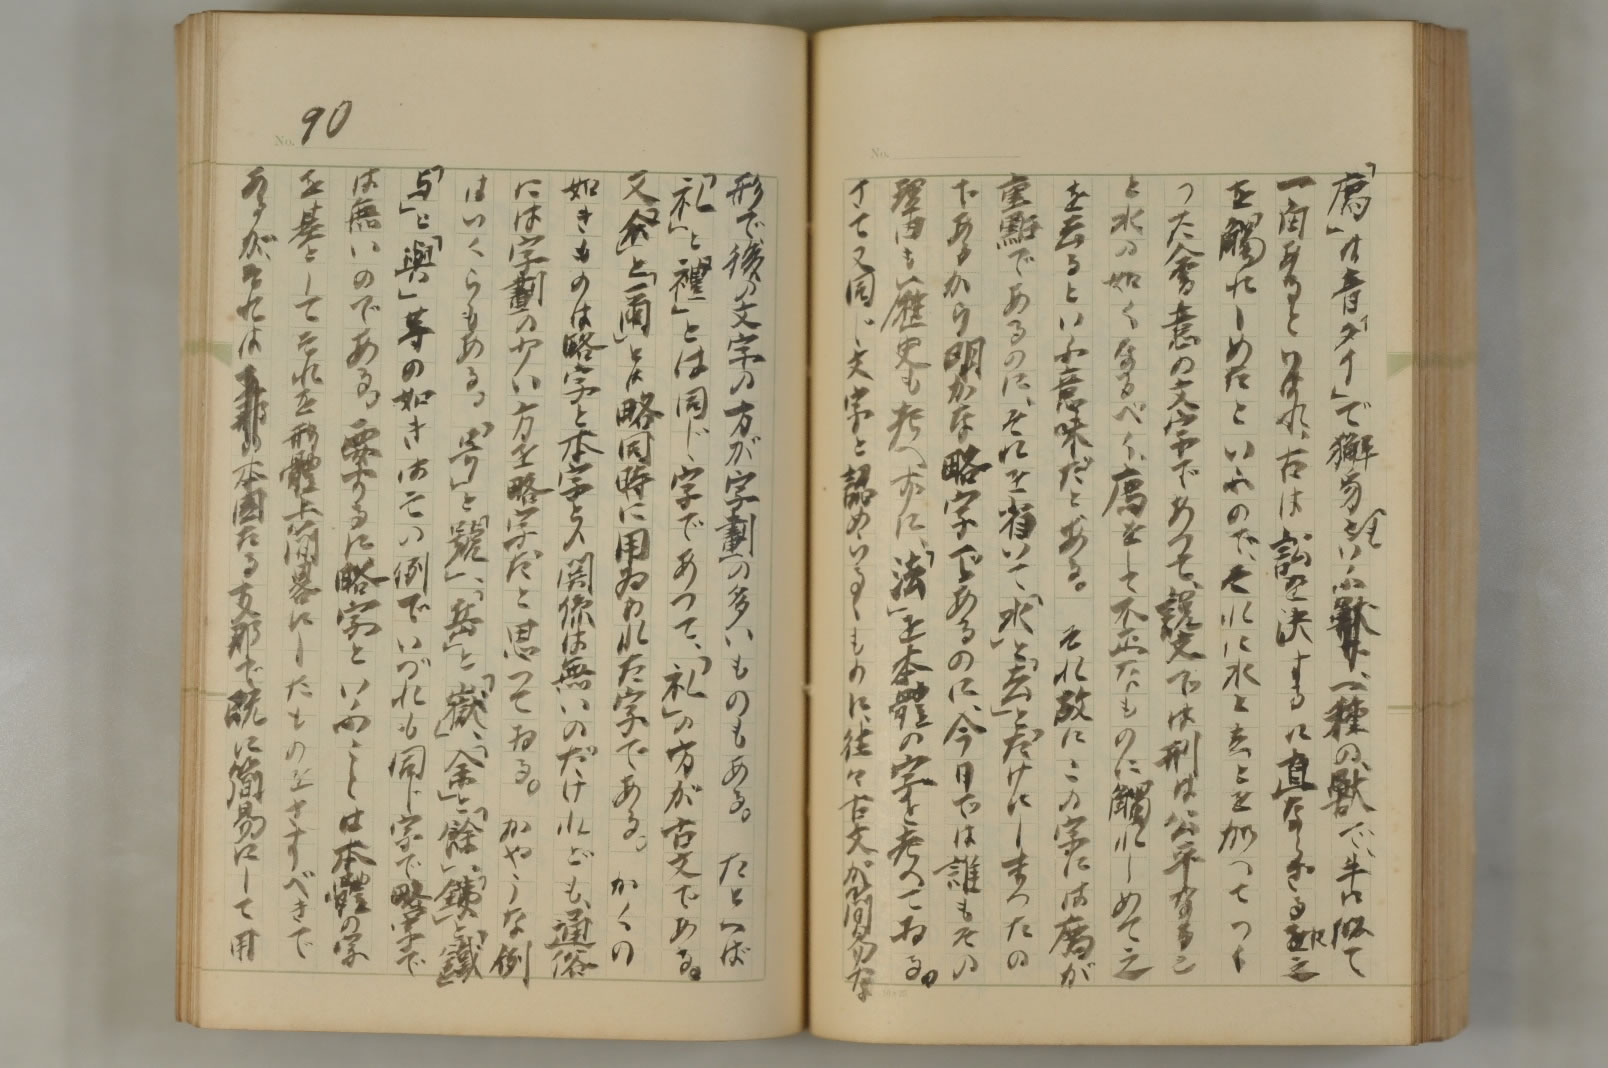 「廌」は音「タイ」で獬廌といふ獸、一種の獸で、牛に似て
一角ありといはれ、古は訟を決するに直ならざる者は之
を觸れしめたといふので、それに水と去とを加へてつく
つた會意の文字であつて、説文では刑は公平なるこ
と水の如くなるべく、廌をして不正なものに觸れしめて之
を去るといふ意味だとある。それ故にこの字には廌が
重點であるのに、それを省いて「水」と「去」とだけにしまつたの
であるから明かな略字であるのに、今日では誰もその
理由も歴史も考へずに、「法」を本體の字と考へてゐる。
さて又同じ文字と認めゐるものに、往々古文が簡易な
90
No.
形で後の文字の方が字劃の多いものもある。たとへば
「礼」と「禮」とは同じ字であつて、「礼」の方が古文である。
又「尒」と「爾」とは略同時に用ゐられた字である。かくの
如きものは略字と本字との關係は無いのだけれども、通俗
には字劃の少い方を略字だと思つてゐる。かやうな例
はいくらもある。「号」と「號」、「岳」と「嶽」、「余」と「餘」、「鉄」と「鐵」
「与」と「與」等の如きはその例でいづれも同じ字で略字で
は無いのである。要するに略字といふことは本體の字
を基としてそれを形體上簡畧にしたものをさすべきで
あるがそれは本國たる支那で既に簡易にして用